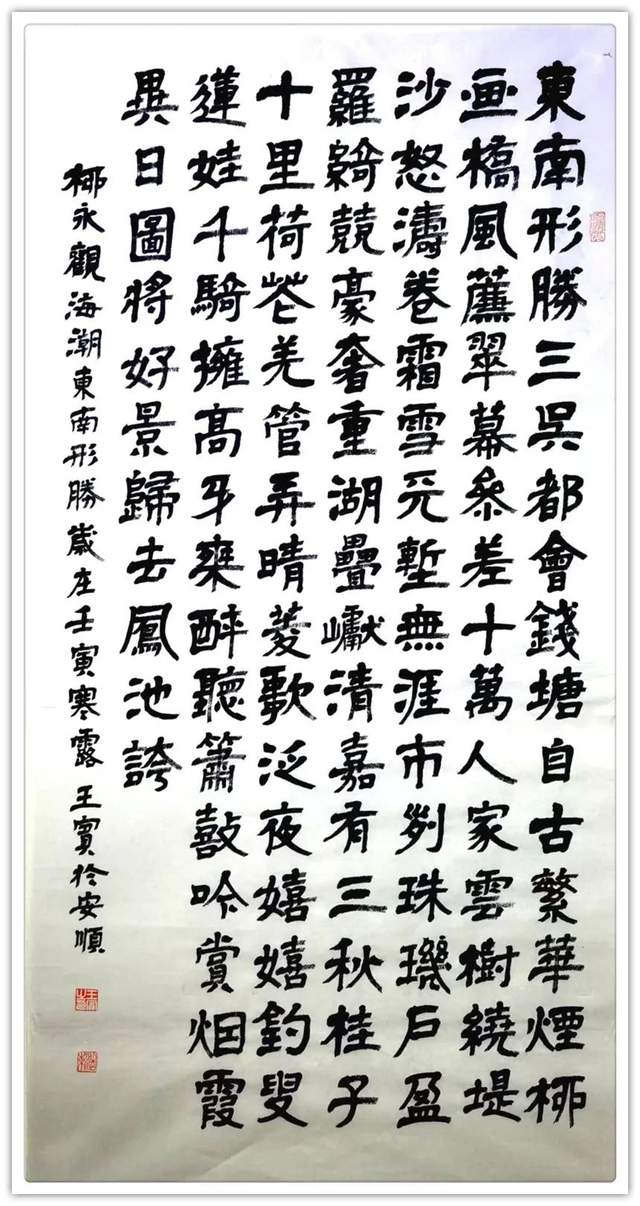 東南形勝三吳都會錢塘自古繁華煙柳
画橋風簾翠幕參差十萬人家雲樹繞堤
沙怒濤卷霜雪天塹無涯市列珠璣戶盈
羅綺競豪奢重湖疊巘清嘉有三秋桂子
十里荷花羌管弄晴菱歌泛夜嬉嬉釣叟
蓮娃千騎擁高牙乘醉聽簫鼓吟賞烟霞
異日圖將好景歸去鳳池誇
柳永觀海潮東南形勝歲在壬寅寒露王實於安順